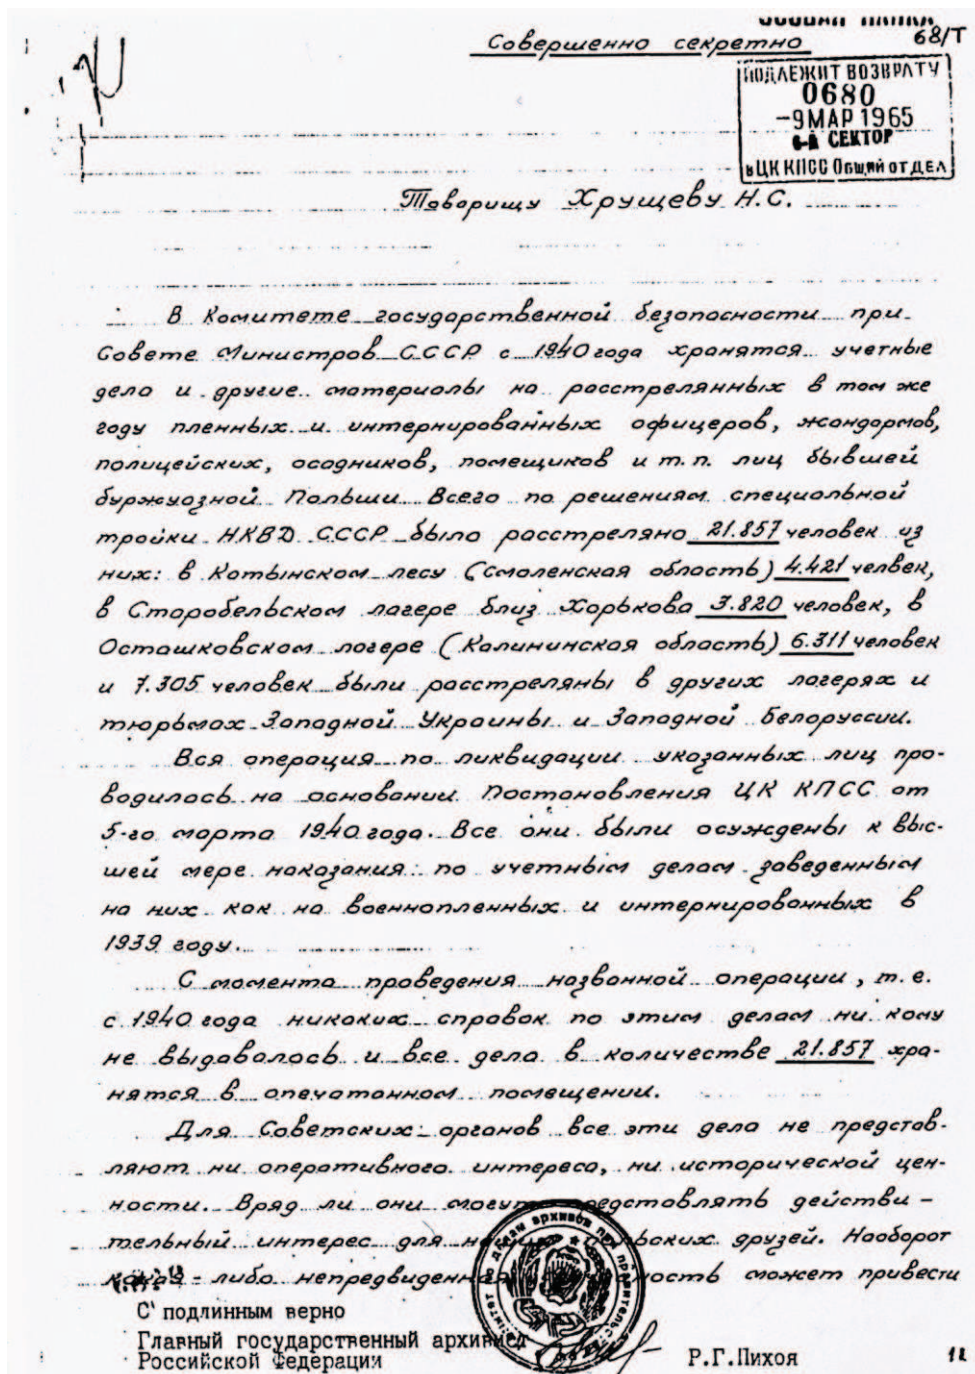 ОСОБАЯ ПАПКА
Совершенно секретно
68/Т
ПОДЛЕЖИТ ВОЗВРАТУ
0680
-9 МАР 1965
6-й СЕКТОР
в ЦК КПСС Общий отдел
Товарищу Хрущеву Н.С.
В Комитете государственной безопасности при
Совете Министров СССР с 1940 года хранятся учетные
дела и другие материалы на расстрелянных в том же
году пленных и интернированных офицеров, жандармов,
полицейских, осадников, помещиков и т.п. лиц бывшей
буржуазной Польши. Всего по решениям специальной
тройки НКВД СССР было расстреляно 21.857 человек из
них: в Катынском лесу (Смоленская область) 4.421 челвек,
в Старобельском лагере близ Харькова 3.820 человек, в
Осташковском лагере (Калининская область) 6.311 человек
и 7.305 человек были расстреляны в других лагерях и
тюрьмах Западной Украины и Западной Белоруссии.
Вся операция по ликвидации указанных лиц про-
водилась на основании Постановления ЦК КПСС от
5-го марта 1940 года. Все они были осуждены к выс-
шей мере наказания по учетным делам заведенным
на них как на военнопленных и интернированных в
1939 году.
С момента проведения названной операции, т.е.
с 1940 года никаких справок по этим делам ни кому
не выдавалось и все дела в количестве 21.857 хра-
нятся в опечатанном помещении.
Для Советских органов все эти дела не представ-
ляют ни оперативного интереса, ни исторической цен-
ности. Вряд ли они могут представлять действи-
тельный интерес для польских друзей. Наоборот
какая-либо непредвиденная может привести
С подлинным верно
Главный государственный архивист
Российской Федерации
Р.Г.Пихоя